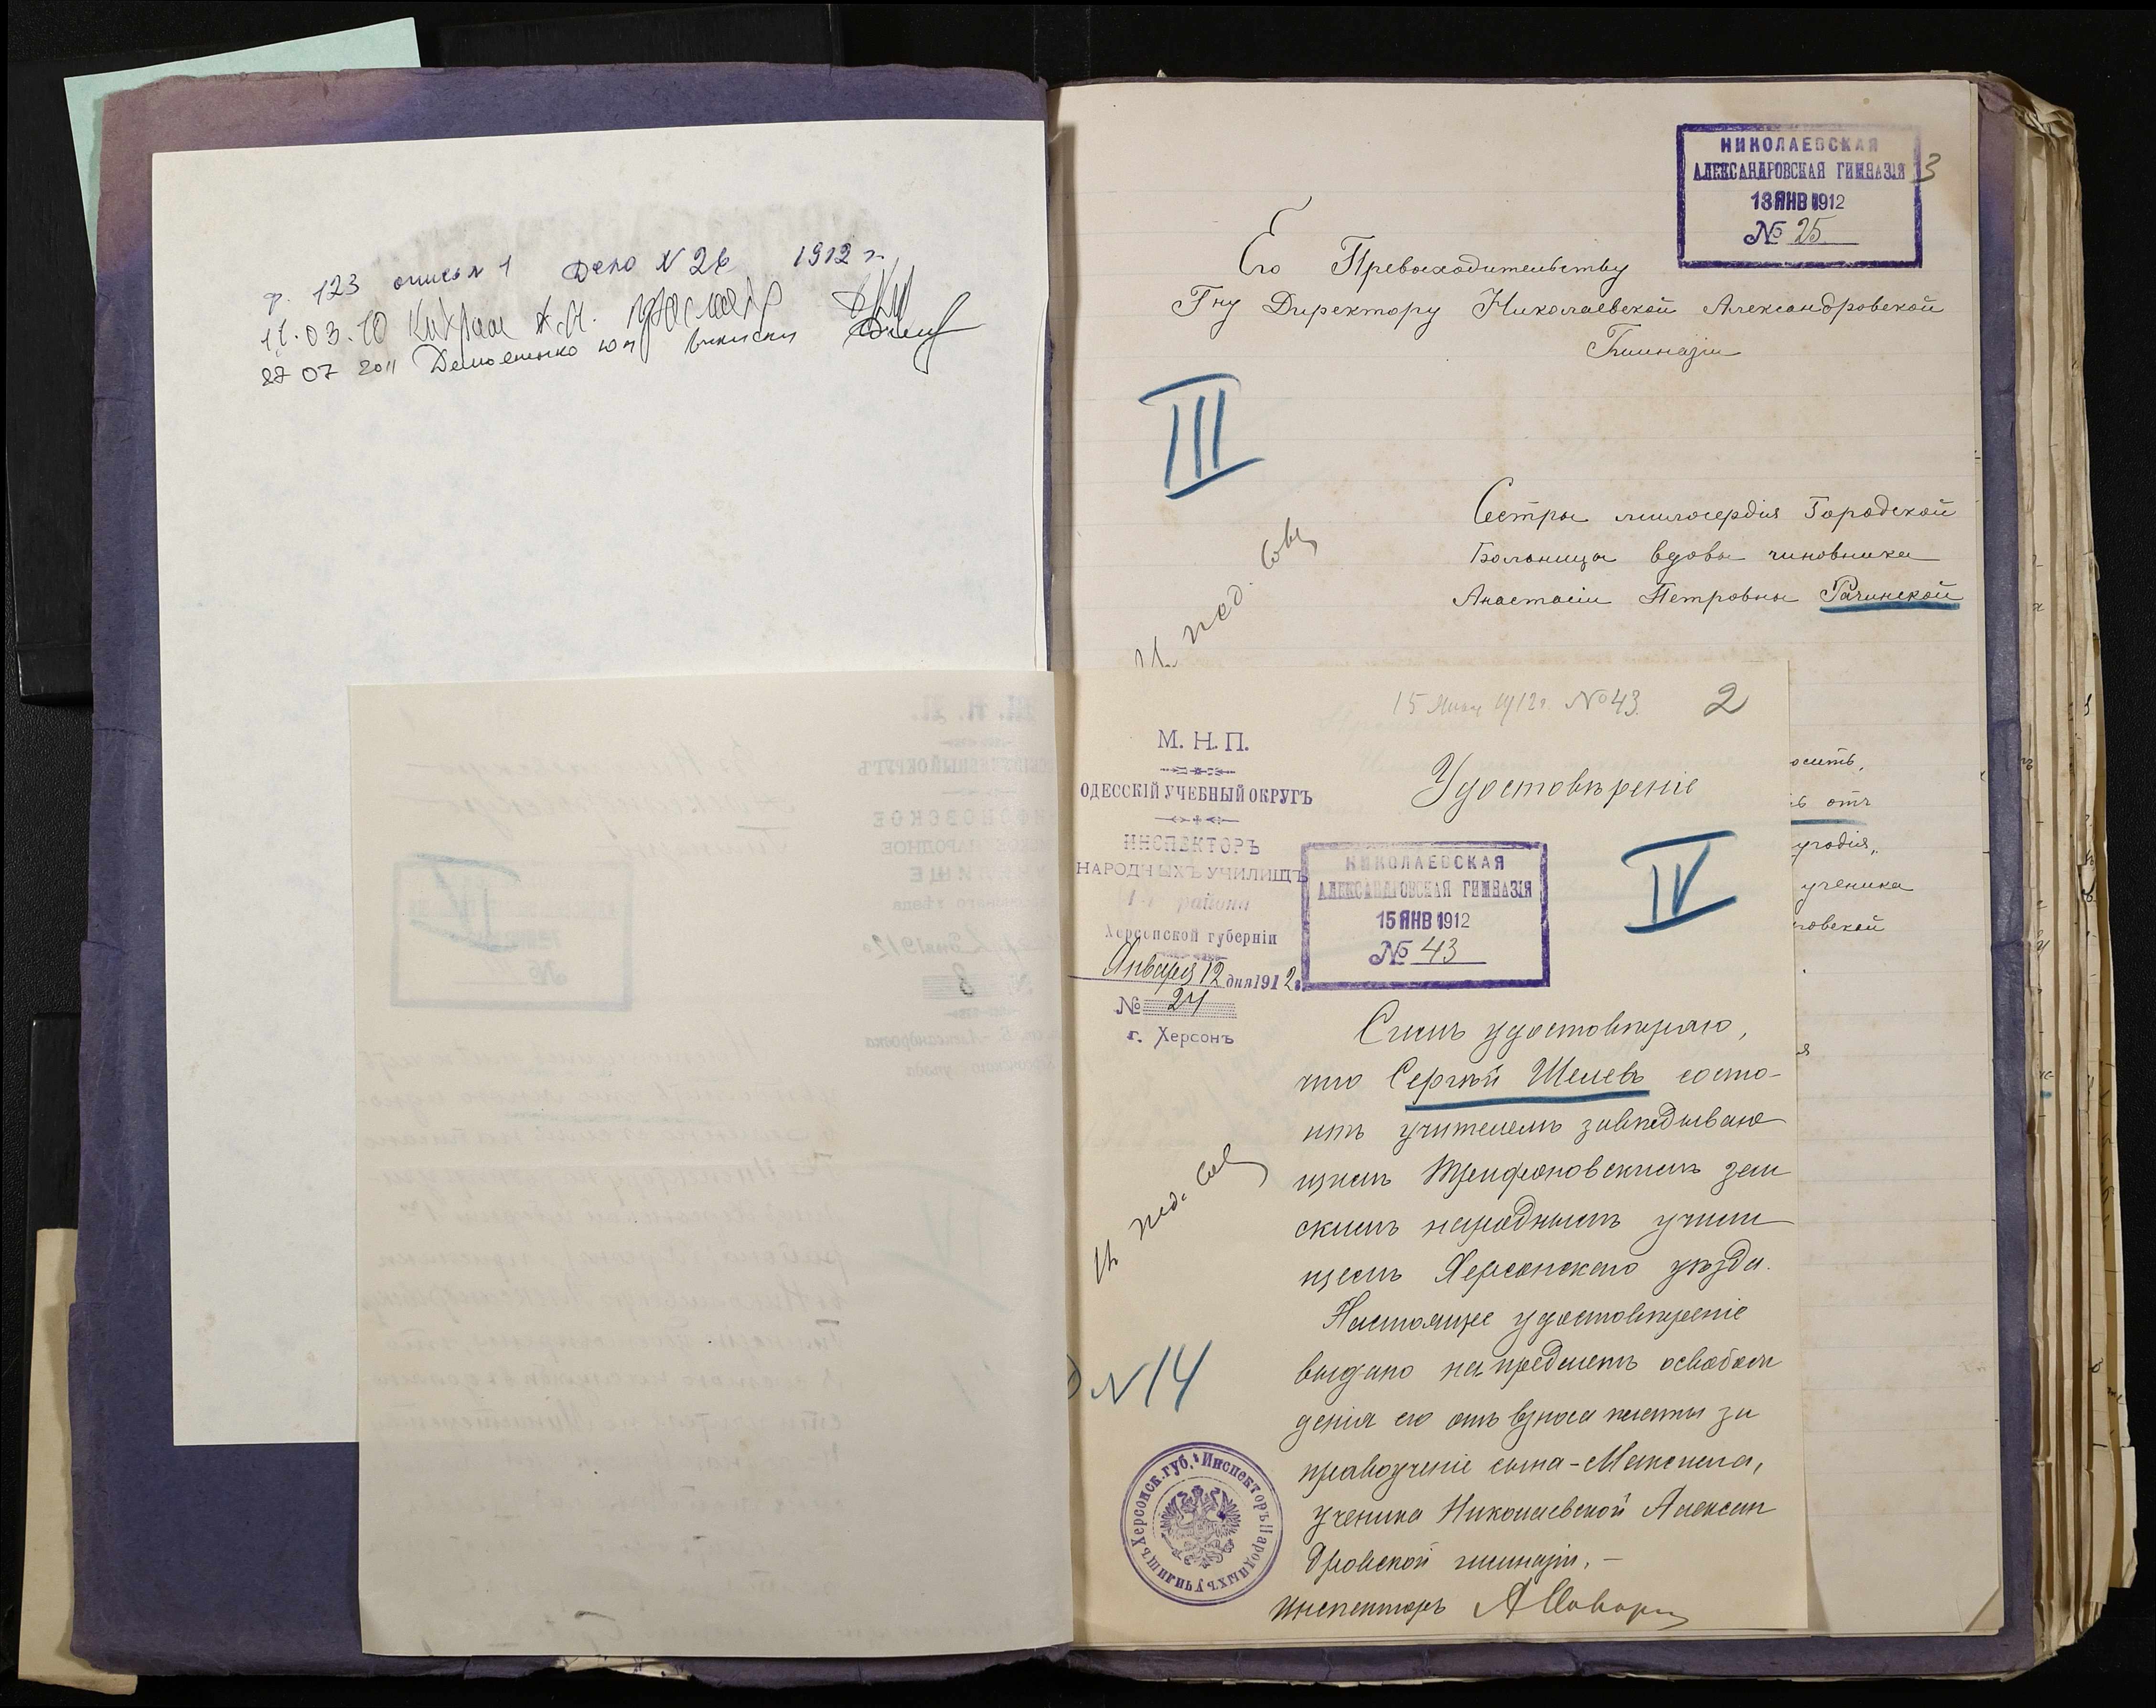 ф. 123 опись 1 Дело N 26 1912 г.
11.03.10
27 07 2011 выписки
НИКОЛАЕВСКАЯ
АЛЕКСАНДРОВСКАЯ ГИМНАЗІЯ
13 ЯНВ 1912
№ 25
3
Его Превосходительству
Гну Директору Николаевской Александровской
Гимназіи
III
Сестры милосердія Городской
Больницы вдовы чиновника
Анастасіи Петровны Рачинской
Въ пед. сов.
15 Янв 1912 г. № 43.
2
М. Н. П.
ОДЕССКІЙ УЧЕБНЫЙ ОКРУГЪ
ИНСПЕКТОРЪ
НАРОДНЫХЪ УЧИЛИЩЪ
1-го района
Херсонской губерніи
Января 12 дня 1912 г.
№ 24
г. Херсонъ
Удостовѣреніе
НИКОЛАЕВСКАЯ
АЛЕКСАНДРОВСКАЯ ГИМНАЗІЯ
15 ЯНВ 1912
№ 43
IV
Симъ удостовѣряю,
что Сергѣй Шелевъ состо-
итъ учителемъ завѣдываю
щимъ Трифоновскимъ зем
скимъ народнымъ учили
щемъ Херсонскаго уѣзда.
Настоящее удостовѣреніе
выдано на предметъ освобож
денія его отъ взноса платы за
правоученіе сына - Максима,
ученика Николаевской Алексан
дровской гимназіи. —
Инспекторъ
Въ пед. сов.
N 14
Инспекторъ Народныхъ Училищъ Херсонск. губ.
осить,
отъ
угодія,
ученика
ровской